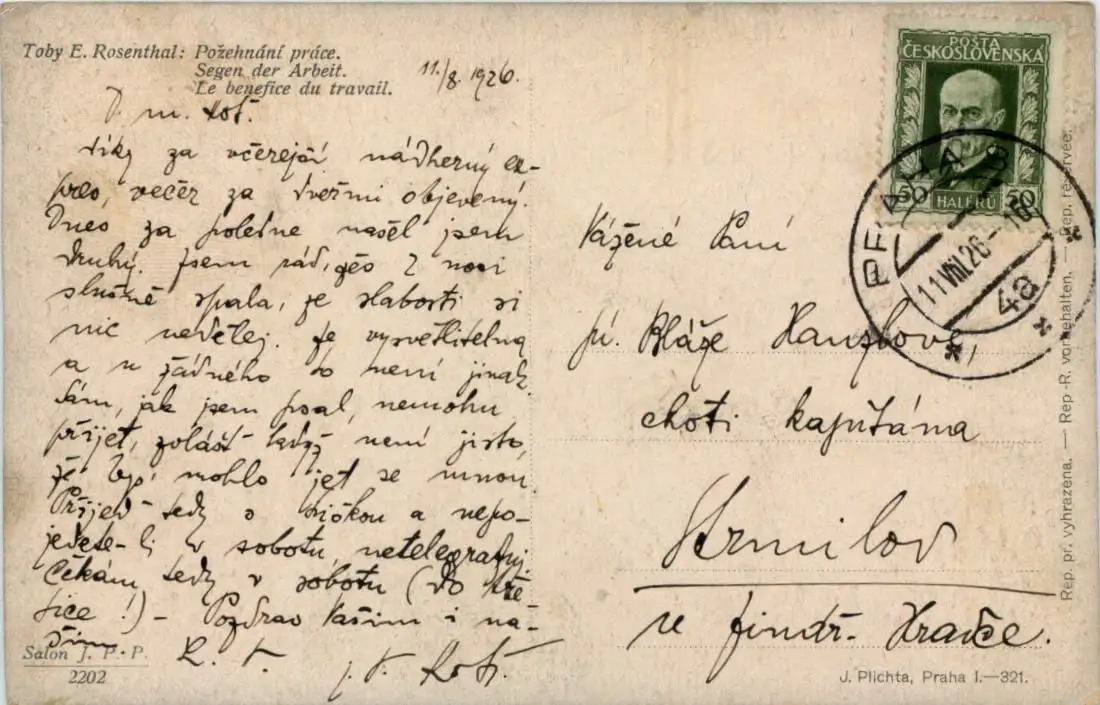 Toby E. Rosenthal: Požehnání práce.
Segen der Arbeit.
Le benefice du travail.
11./8 1926.
D. m. Kof.
díky za včerejší nádherný ex-
pres, večer za dveřmi objevený.
Dnes za poledne našel jsem
druhý. Jsem rád, žes 2 noci
slušně spala, ze slabosti si
nic nedělej. Je vysvětlitelna
a u žádného to není jinak.
Sám, jak jsem psal, nemohu
přijet, zvlášť když není jisto,
že bys mohla jet se mnou.
Přijeď tedy s a nepo-
jedete-li v sobotu, netelegrafuj.
Čekám tedy v sobotu (do
!) - Pozdrav Vašim i na-
šim.
Vážené Paní
pí. Bláže Hanzlově,
choti kapitána
Strmilov
u Jindř. Hradce.
POŠTA
ČESKOSLOVENSKÁ
50 HALÉŘŮ 50
PRAHA 3
11.VIII.26-
4a
Rep. pr. vyhrazena. — Rep.-R. vorbehalten. — Rep. réservée.
Salon J. P. P.
2202
J. Plichta, Praha I.—321.